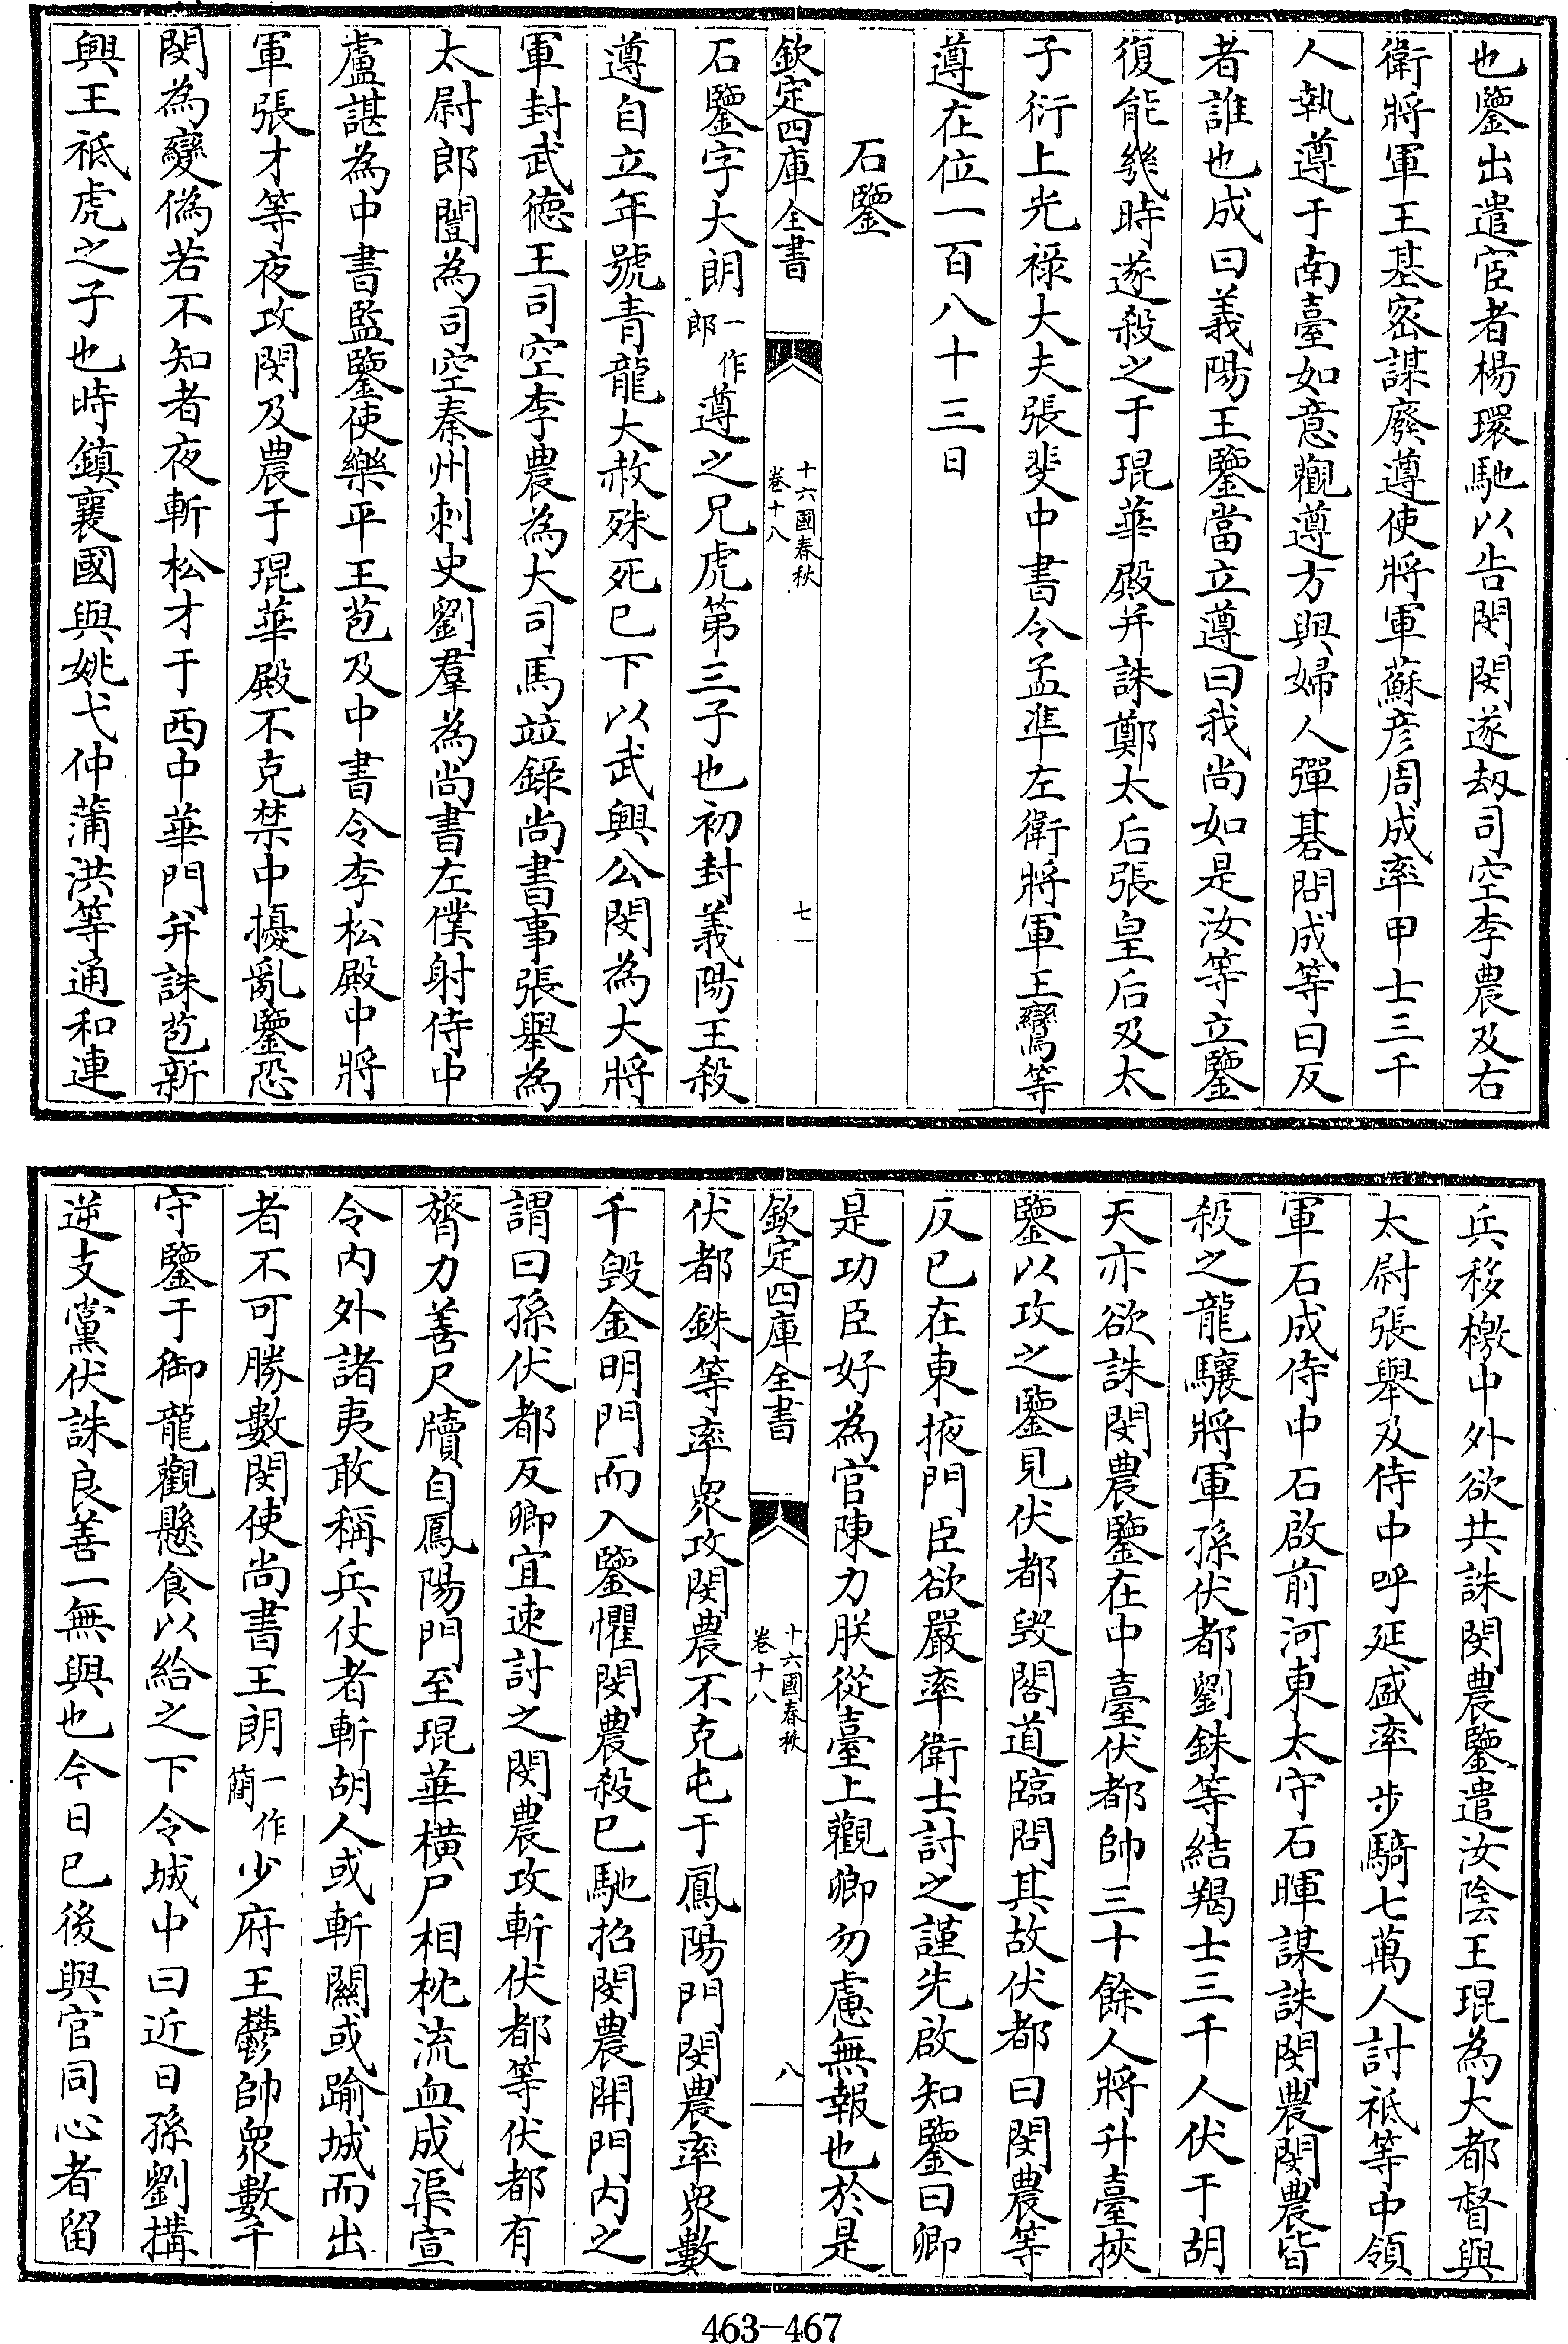 也鑒出遣宦者楊環馳以告閔閔遂刼司空李農及右
衛將軍王基密謀廢遵使將軍蘇彦周成率甲士三千
人執遵于南臺如意觀遵方與婦人彈棊問成等曰反
者誰也成曰義陽王鑒當立遵曰我尚如是汝等立鑒
復能㡬時遂殺之于琨華殿并誅鄭太后張皇后及太
子衍上光祿大夫張斐中書令孟準左衛將軍王鸞等
遵在位一百八十三日
石鑒
欽定四庫全書
十六國春秋
卷十八
七
石鑒字大朗一作郎遵之兄虎第三子也初封義陽王殺
遵自立年號青龍大赦殊死已下以武興公閔為大將
軍封武德王司空李農為大司馬竝錄尚書事張舉為
太尉郎闓為司空秦州刺史劉羣為尚書左僕射侍中
盧諶為中書監鑒使樂平王苞及中書令李松殿中將
軍張才等夜攻閔及農于琨華殿不克禁中擾亂鑒恐
閔為變偽若不知者夜斬松才于西中華門并誅苞新
興王祗虎之子也時鎮襄國與姚弋仲蒲洪等通和連
兵移檄中外欲共誅閔農鑒遣汝陰王琨為大都督與
太尉張舉及侍中呼延盛率步騎七萬人討祗等中領
軍石成侍中石啟前河東太守石暉謀誅閔農閔農皆
殺之龍驤將軍孫伏都劉銖等結羯士三千人伏于胡
天亦欲誅閔農鑒在中臺伏都帥三十餘人將升臺挾
鑒以攻之鑒見伏都毀閣道臨問其故伏都曰閔農等
反已在東掖門臣欲嚴率衛士討之謹先啟知鑒曰卿
是功臣好為官陳力朕從臺上觀卿勿慮無報也於是
欽定四庫全書
十六國春秋
卷十八
八
伏都銖等率眾攻閔農不克屯于鳳陽門閔農率眾數
千毀金明門而入鑒懼閔農殺已馳招閔農開門内之
謂曰孫伏都反卿宜速討之閔農攻斬伏都等伏都有
膂力善尺牘自鳳陽門至琨華横尸相枕流血成渠宣
令内外諸夷敢稱兵仗者斬胡人或斬關或踰城而出
者不可勝數閔使尚書王朗一作簡少府王鬱帥眾數千
守鑒于御龍觀懸食以給之下令城中曰近日孫劉搆
逆支黨伏誅良善一無與也今日已後與官同心者留
463-467